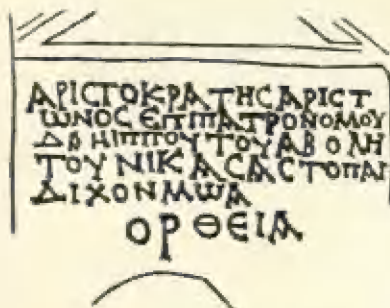 ΑΡΙCΤΟΚΡΑΤΗCΑΡΙCΤ
ωΝΟCΕΠΙΠΑΤΡΟΝΟΜΟΥ
ΔΑΗΙΠΠΟΥΤΟΥΑΒΟΛΗ
ΤΟΥΝΙΚΑCΑCΤΟΠΑΙ
ΔΙΧΟΝΜωΑ
ΟΡΘΕΙΑ